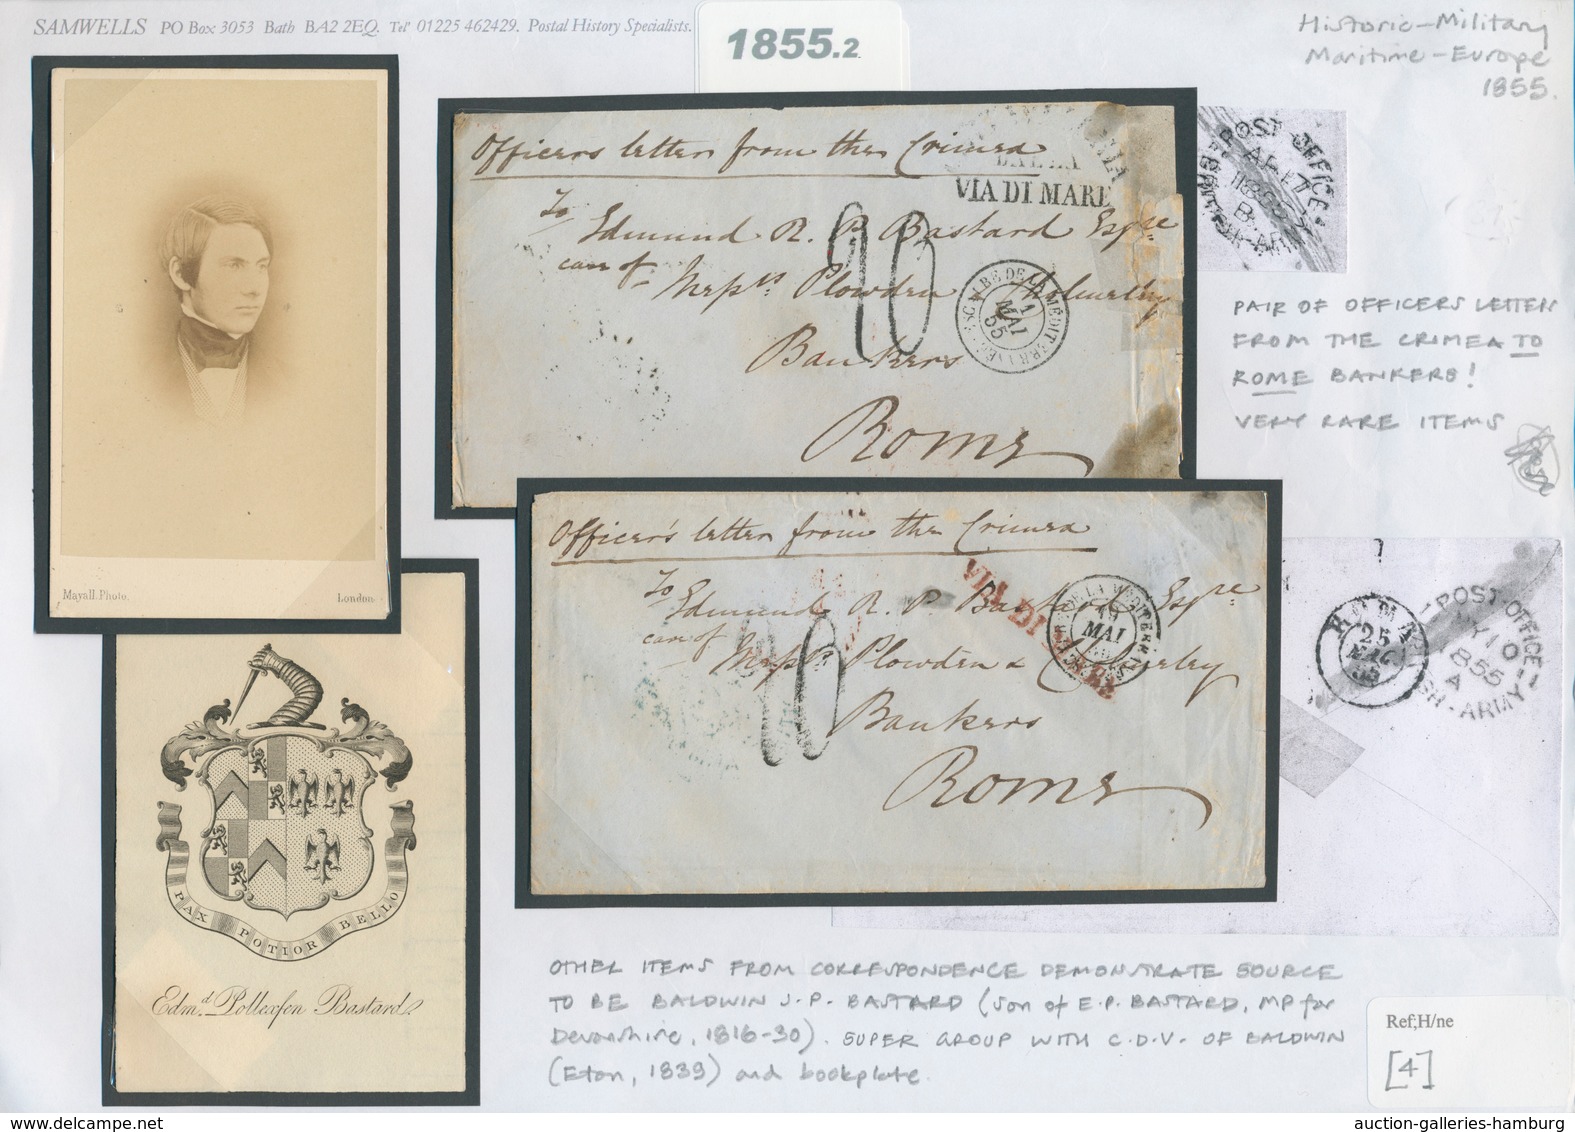 SAMWELLS PO Box 3053 Bath BA2 2EQ. Tel' 01225 462429. Postal History Specialists.
1855.2
Historic-Military
Maritime-Europe
1855.
Officers letter from the Crimea
VIA DI MARE
To
Edmund R. P. Bastard Esqre
care of
Messrs. Plowden
Bankers
Rome
MAI
55
POST OFFICE
AP 17
1855
B
PAIR OF OFFICERS LETTER
FROM THE CRIMEA TO
ROME BANKERS!
VERY RARE ITEMS
Mayall. Photo.
London.
Officer's letter from the Crimea
To
Edmund R. P. Bastard Esqre
care of
Messrs Plowden &
Bankers
Rome
VIA DI MARE
MAI
ROMA
25
MAG
55
POST-OFFICE
1855
A
SH-ARMY
PAX POTIOR BELLO
Edmd. Pollexfen Bastard
OTHER ITEMS FROM CORRESPONDENCE DEMONSTRATE SOURCE
TO BE BALDWIN J.P. BASTARD (son of E.P. BASTARD, MP for
Devonshire, 1816-30). SUPER GROUP WITH C.D.V. OF BALDWIN
(Eton, 1839) and bookplate.
Ref;H/ne
[4]
auction-galleries-hamburg